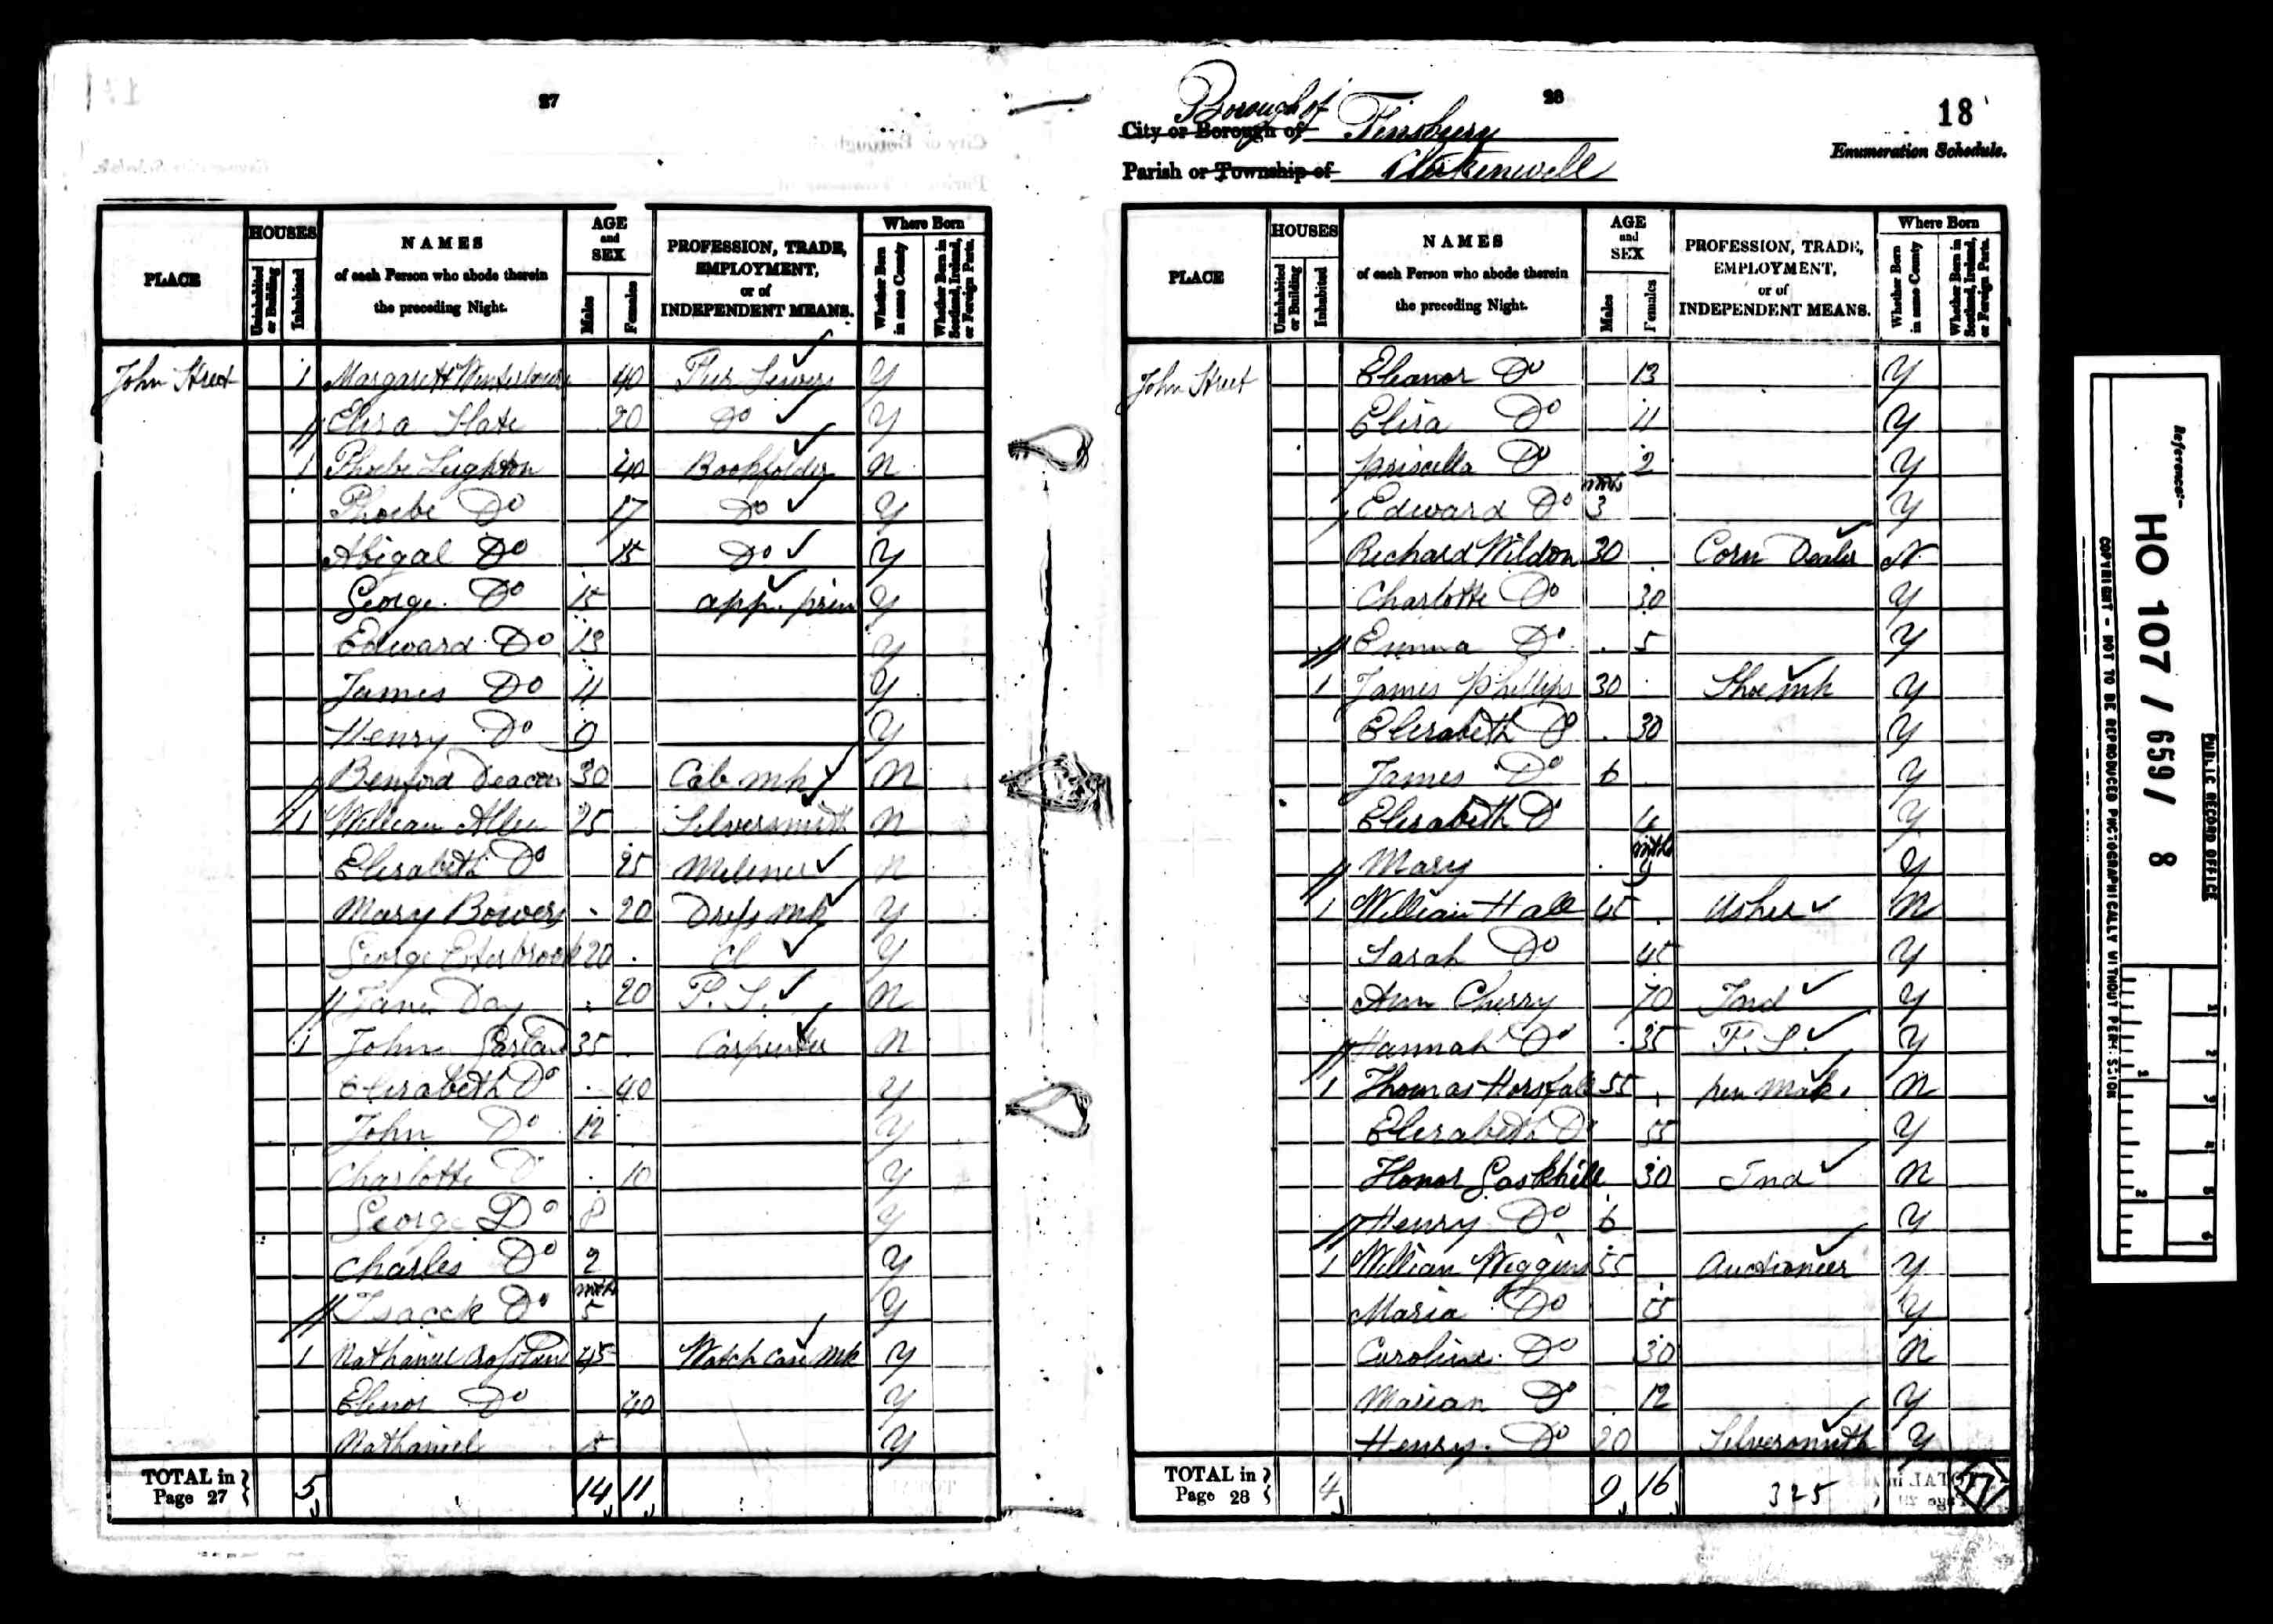 27
HOUSES
AGE
and
SEX
Where Born
PLACE
Uninhabited or Building
Inhabited
NAMES
of each Person who abode therein
the preceding Night.
Males
Females
PROFESSION, TRADE,
EMPLOYMENT,
or of
INDEPENDENT MEANS.
Whether Born in same County
Whether Born in Scotland, Ireland, or Foreign Parts.
John Street 1 Margarett 40 Fur Sewer Y
Elisa Slate 20 Do Y
1 Phoebe Leighton 40 Bookfolder N
Phoebe Do 17 Do Y
Abigal Do 15 Do Y
George Do 15 app. prin Y
Edward Do 13 Y
James Do 11 Y
Henry Do 9 Y
Benford Deacon 30 Cab mk N
1 William Allen 25 Silversmith N
Elisabeth Do 25 Milener N
Mary Bowers 20 Dress mk Y
George Esterbrook 20 Cl Y
Jane Day 20 F. S. N
1 John 35 Carpenter N
Elisabeth Do 40 Y
John Do 12 Y
Charlotte D 10 Y
George Do 8 Y
Charles Do 2 Y
Isacck Do mths 5 Y
1 Nathaniel 45 Watch case mk Y
Elinor Do 40 Y
Nathaniel 15 Y
TOTAL in Page 27 5 14 11
28
18
Borough of
City or Borough of Finsbury
Enumeration Schedule.
Parish or Township of Clerkenwell
HOUSES
AGE
and
SEX
Where Born
PLACE
Uninhabited or Building
Inhabited
NAMES
of each Person who abode therein
the preceding Night.
Males
Females
PROFESSION, TRADE,
EMPLOYMENT,
or of
INDEPENDENT MEANS.
Whether Born in same County
Whether Born in Scotland, Ireland, or Foreign Parts.
John Street Eleanor Do 13 Y
Elisa Do 11 Y
Priscella Do 2 Y
Edward Do mths 3 Y
Richard Wildon 30 Corn Dealer N
Charlotte Do 30 Y
Emma Do 5 Y
1 James Phillips 30 Shoe mk Y
Elisabeth Do 30 Y
James Do 6 Y
Elisabeth D Y
Mary mths 9 Y
1 William Hall 45 Usher N
Sarah Do 45 Y
Ann Cherry 70 Ind Y
Hannah Do 35 F. S. Y
1 Thomas Horsfall 55 pen Mak. N
Elisabeth Do 55 Y
Honor Goskhill 30 Ind N
Henry Do 6 Y
1 William Wiggins 55 Auctioneer Y
Maria Do 55 Y
Caroline Do 30 N
Marian Do 12 Y
Henry Do 20 Silversmith Y
TOTAL in Page 28 4 9 16 325 17
Reference:-
HO 107 / 659 / 8
PUBLIC RECORD OFFICE
COPYRIGHT - NOT TO BE REPRODUCED PHOTOGRAPHICALLY WITHOUT PERMISSION